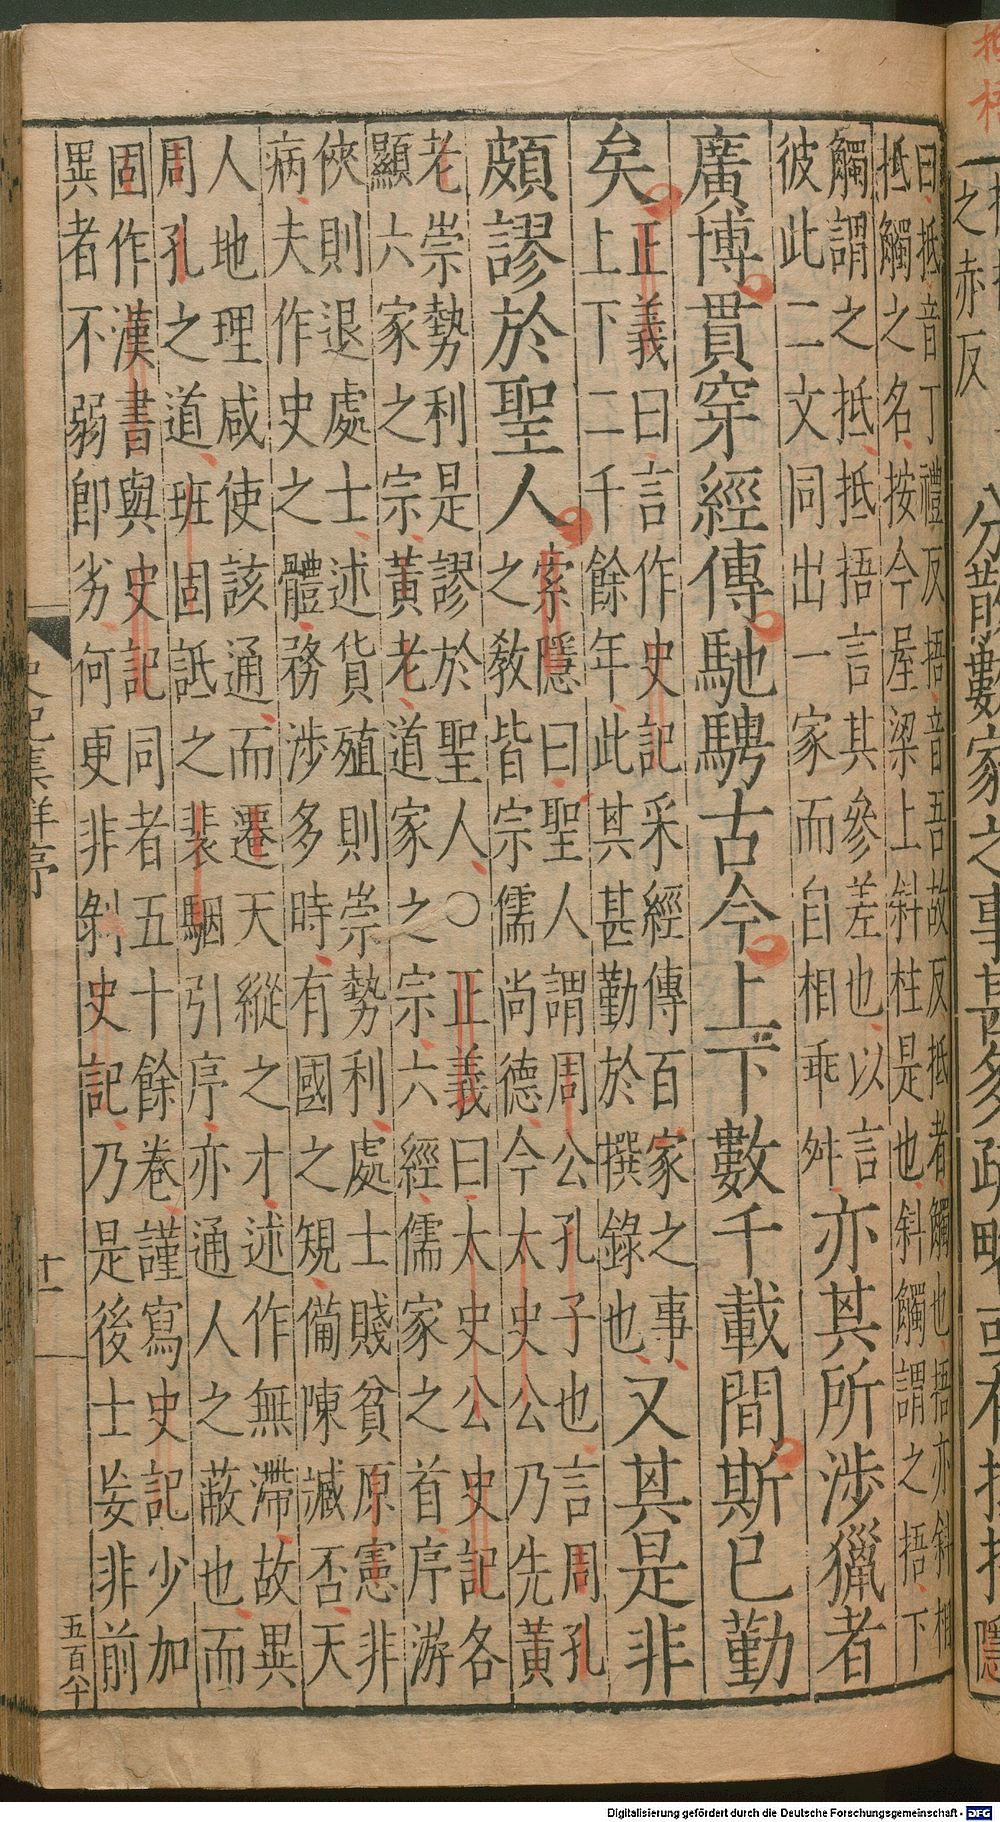 曰抵音丁禮反捂音吾故反抵者觸也捂亦斜相
抵觸之名按今屋梁上斜柱是也斜觸謂之捂下
觸謂之抵抵捂言其參差也以言
彼此二文同出一家而自相乖舛
亦其所涉獵者
廣博貫穿經傳馳騁古今上下數千載間斯已勤
矣
正義曰言作史記采經傳百家之事
上下二千餘年此其甚勤於撰錄也
又其是非
頗謬於聖人
索隱曰聖人謂周公孔子也言周孔
之敎皆宗儒尚德今太史公乃先黃
老崇勢利是謬於聖人○正義曰太史公史記各
顯六家之宗黃老道家之宗六經儒家之首序游
俠則退處士述貨殖則崇勢利處士賤貧原憲非
病夫作史之體務涉多時有國之規備陳臧否天
人地理咸使該通而遷天縱之才述作無滯故異
周孔之道班固詆之裴駰引序亦通人之蔽也而
固作漢書與史記同者五十餘卷謹寫史記少加
異者不弱卽劣何更非剝史記乃是後士妄非前
史記集解序
十一
五百八十
之赤反
分散數家之事甚多疏略或有抵捂
隱
Digitalisierung gefördert durch die Deutsche Forschungsgemeinschaft - DFG